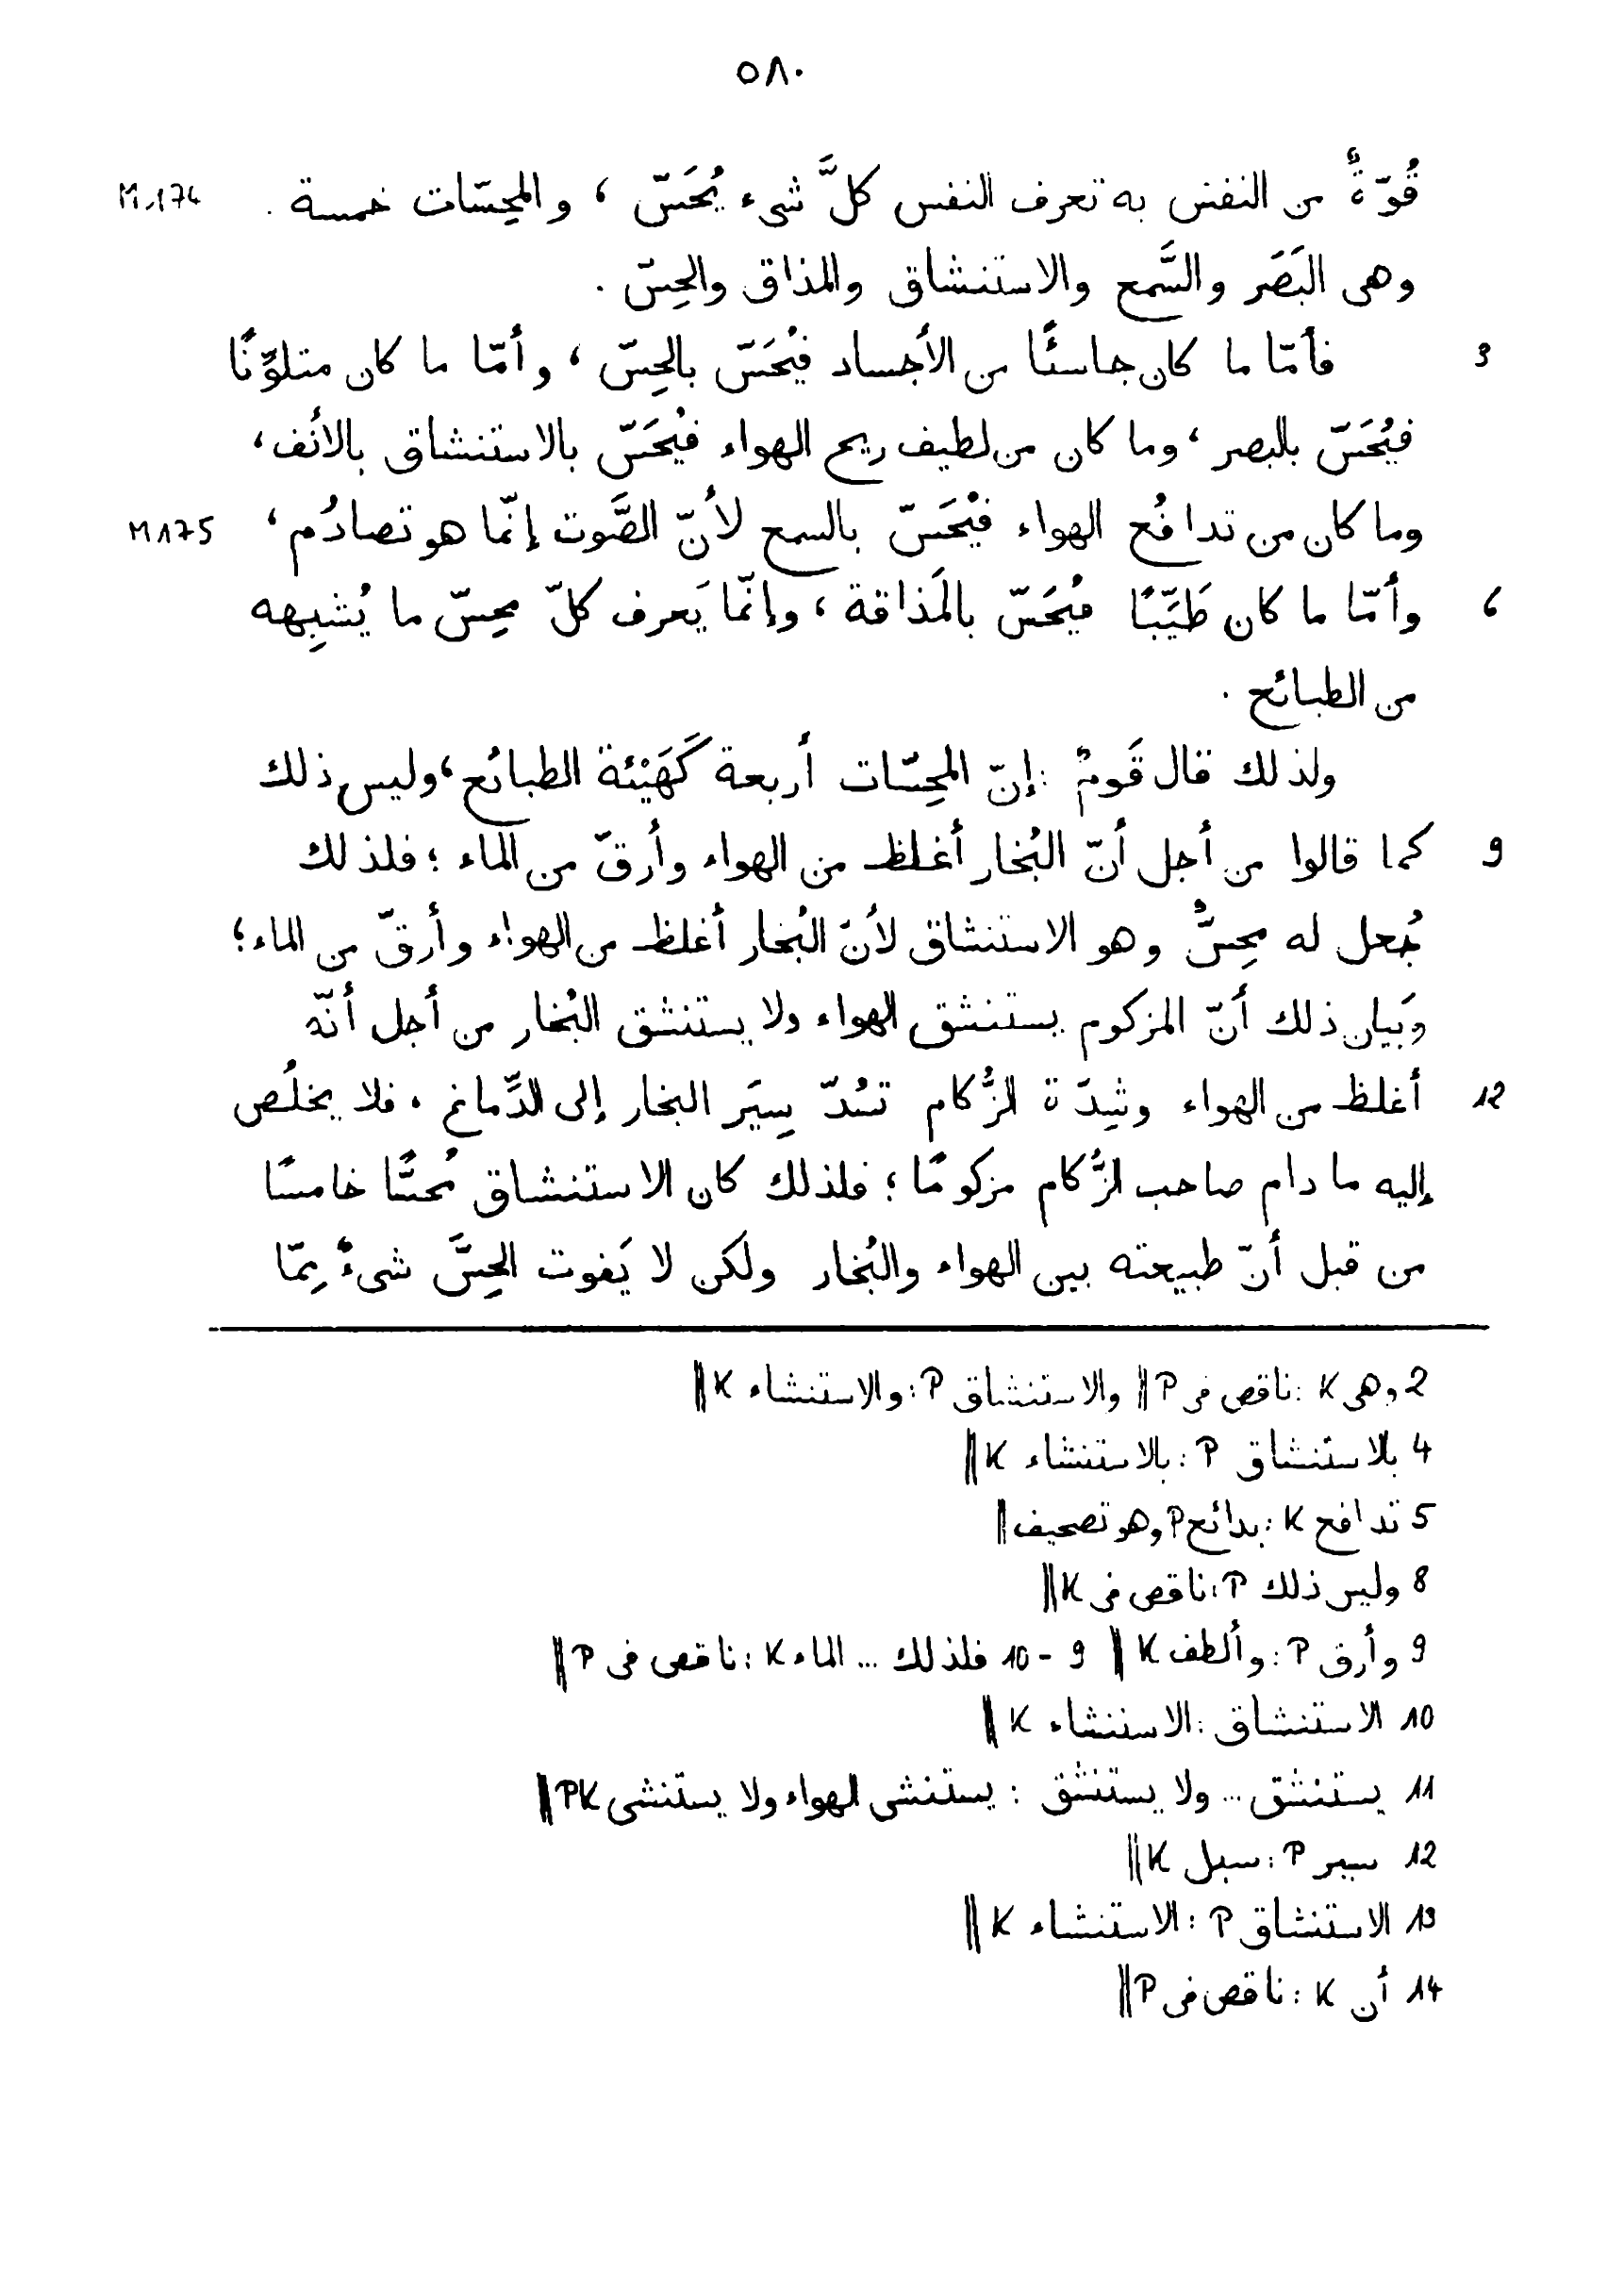 ٥٨٠
قُوّةٌ من النفس به تعرف النفس كلَّ شىء يُحَسّ ، والمحِسّات خمسة . M 174
وهى البَصَر والسَّمع والاستنشاق والمذاق والحِسّ .
فأمّا ما كان جاسئًا من الأجساد فيُحَسّ بالحِسّ ، وأمّا ما كان متلوِّنًا 3
فيُحَسّ بالبصر ، وما كان من لطيف ريح الهواء فيُحَسّ بالاستنشاق بالأنف ،
وما كان من تدافُع الهواء فيُحَسّ بالسمع لأنّ الصَّوت إنّما هو تصادُم ، M 175
وأمّا ما كان طَيِّبًا فيُحَسّ بالمَذاقة ، وإنّما يَعرف كلّ محِسّ ما يُشبِهه 6
من الطبائح .
ولذلك قال قَومٌ : إنّ المحِسّات أربعة كَهَيْئة الطبائع ، وليس ذلك
كما قالوا من أجل أنّ البُخار أغلظ من الهواء وأرقّ من الماء ؛ فلذلك 9
جُعل له محِسٌّ وهو الاستنشاق لأنّ البُخار أغلظ من الهواء وأرقّ من الماء ؛
وَبَيان ذلك أَنّ المزكوم يستنشق الهواء ولا يستنشق البُخار من أجل أنّه
أغلظ من الهواء وشِدّة الزُّكام تسُدّ سِيَر البخار إلى الدِّماغ . فلا يخلُص 12
إليه ما دام صاحب الزُّكام مزكومًا ؛ فلذلك كان الاستنشاق مُحسًّا خامسًا
من قبل أنّ طبيعته بين الهواء والبُخار ولكن لا يَفوت الحِسَّ شىءٌ مِمّا
2 وهى K : ناقص فى P || والاستنشاق P : والاستنشاء K ||
4 بالاستنشاق P : بالاستنشاء K ||
5 تدافع K : بدائع P وهو تصحيف ||
8 وليس ذلك P : ناقص فى K ||
9 وأرق P : وألطف K || 9 - 10 فلذلك ... الماء K : ناقص فى P ||
10 الاستنشاق : الاستنشاء K ||
11 يستنشق ... ولا يستنشق : يستنشى الهواء ولا يستنشى PK ||
12 سير P : سبل K ||
13 الاستنشاق P : الاستنشاء K ||
14 أن K : ناقص فى P ||